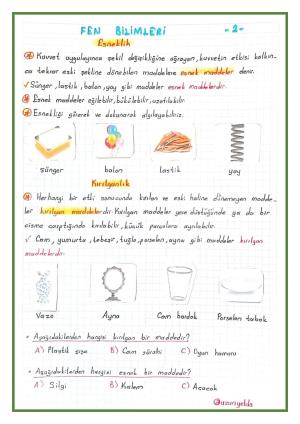 FEN BİLİMLERİ -2-
Esneklik
Kuvvet uygulayınca şekil değişikliğine uğrayan, kuvvetin etkisi kalkın-
ca tekrar eski şekline dönebilen maddelere esnek maddeler denir.
✓ Sünger, lastik, balon, yay gibi maddeler esnek maddelerdir.
Esnek maddeler eğilebilir, bükülebilir, uzatılabilir.
Esnekliği görerek ve dokunarak algılayabiliriz.
sünger balon lastik yay
Kırılganlık
Herhangi bir etki sonucunda kırılan ve eski haline dönemeyen madde-
ler kırılgan maddelerdir. Kırılgan maddeler yere düştüğünde ya da bir
cisme çarptığında kırılabilir, küçük parçalara ayrılabilir.
✓ Cam, yumurta, tebeşir, tuğla, porselen, ayna gibi maddeler kırılgan
maddelerdir.
Vazo Ayna Cam bardak Porselen tabak
• Aşağıdakilerden hangisi kırılgan bir maddedir?
A) Plastik şişe B) Cam sürahi C) Oyun hamuru
• Aşağıdakilerden hangisi esnek bir maddedir?
A) Silgi B) Kalem C) Açacak